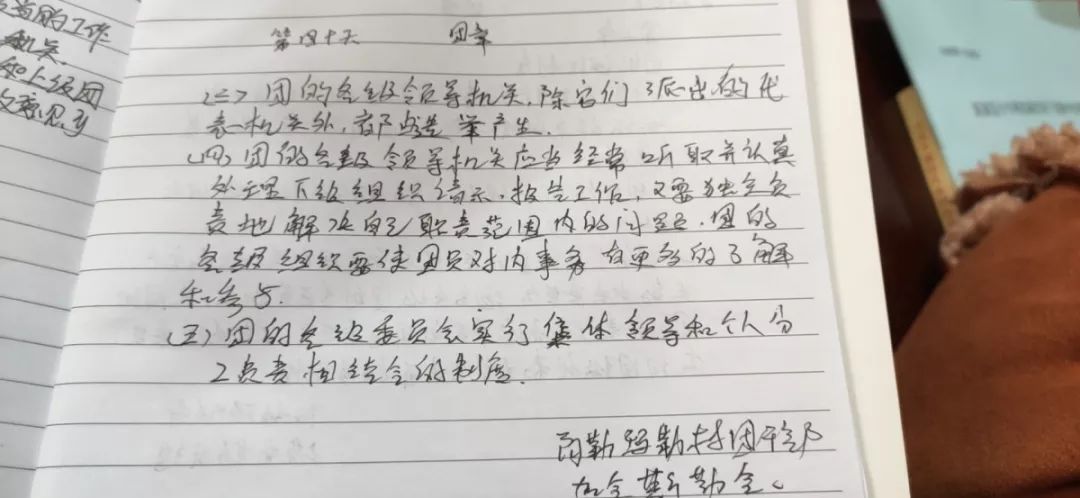 的工作
机关.
和上级团
意见
第四十天 团章
(三) 团的各级领导机关,除它们派出的代
表机关外,都由选举产生.
(四) 团的各级领导机关应当经常听取并认真
处理下级组织请示.报告工作,又要独立负
责地解决自己职责范围内的问题.团的
各级组织要使团员对内事务有更多的了解
和参与.
(五) 团的各级委员会实行集体领导和个人分
工负责相结合的制度.
阿勒玛勒村团支部
加全斯勒全